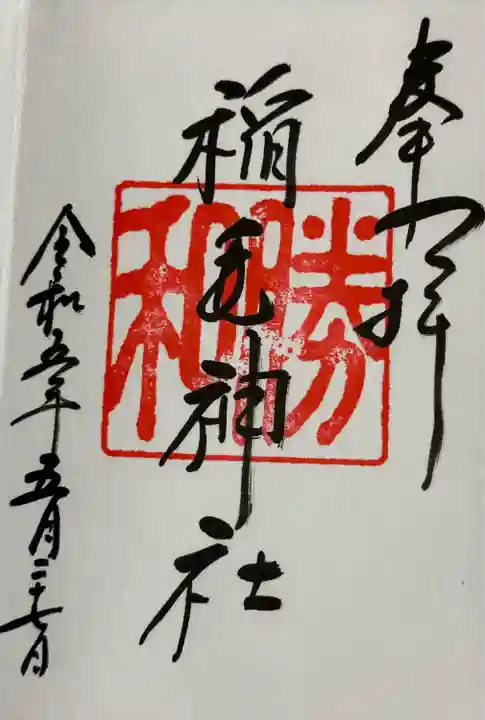 奉拝
稲毛神社
勝和
令和五年五月二十七日